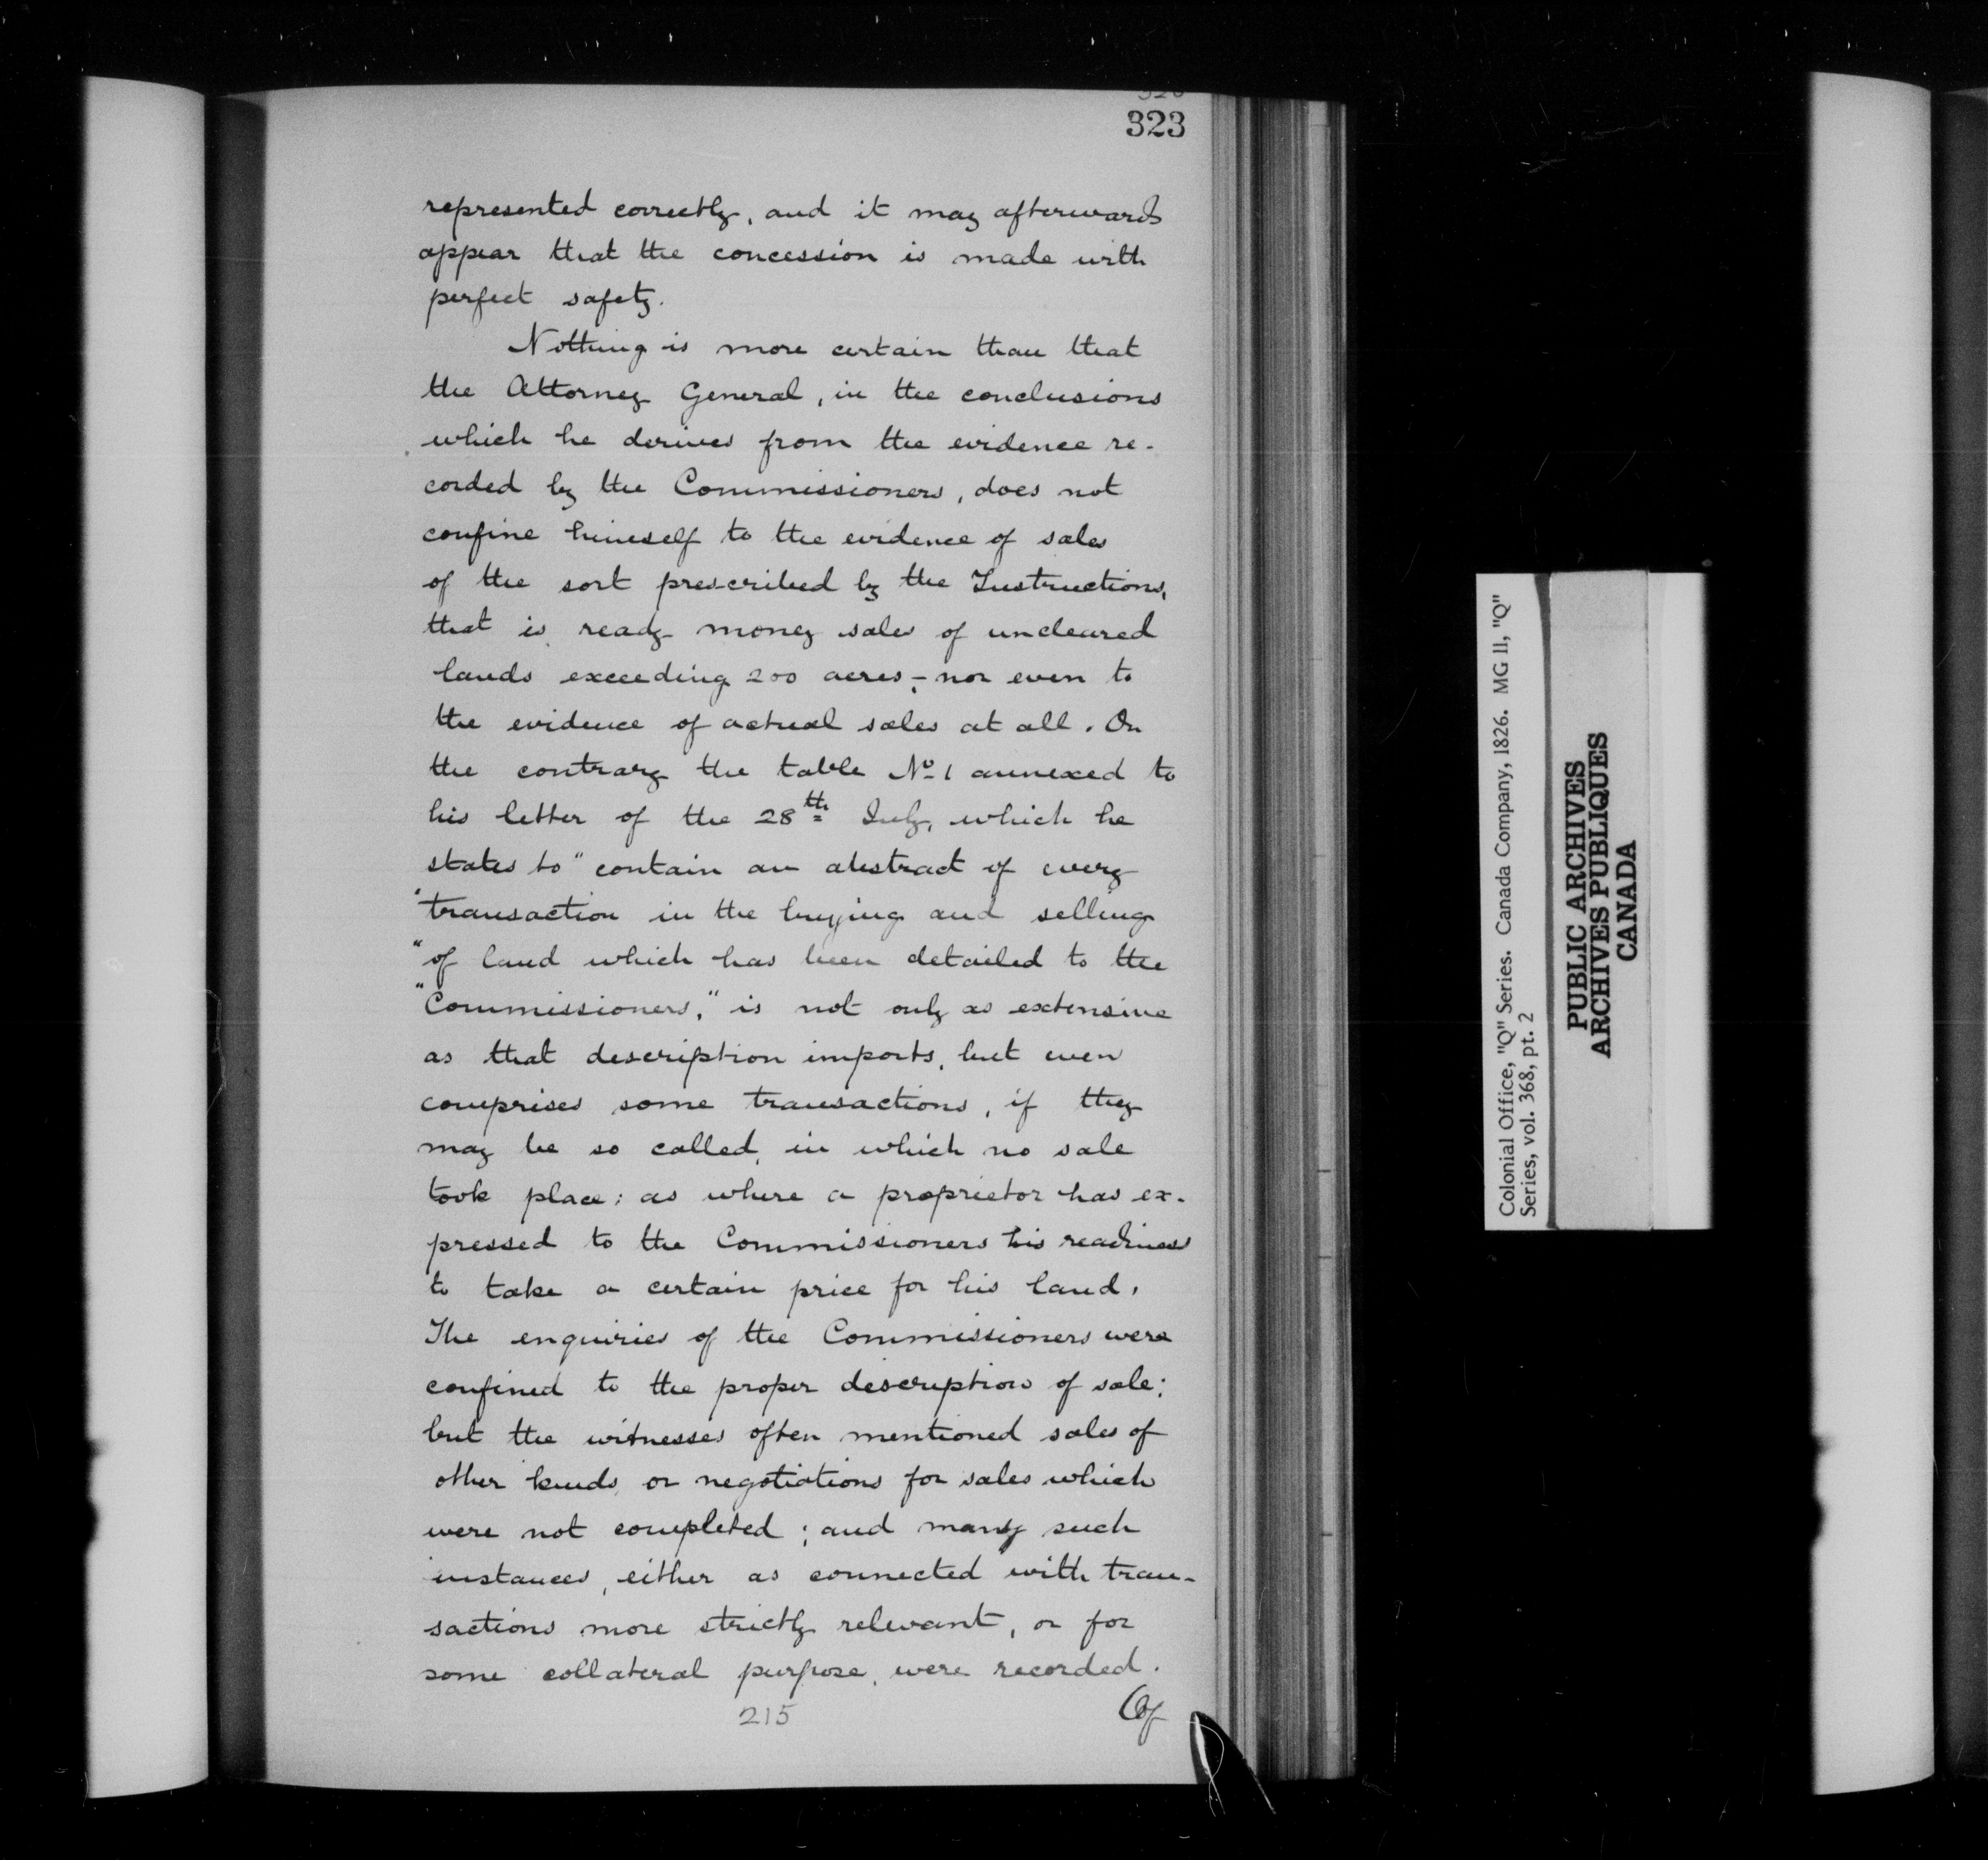 323
represented correctly, and it may afterwards
appear that the concession is made with
perfect safety.
Nothing is more certain than that
the Attorney General, in the conclusions
which he derives from the evidence re-
corded by the Commissioners, does not
confine himself to the evidence of sales
of the sort prescribed by the Instructions,
that is ready money sales of uncleared
lands exceeding 200 acres; - nor even to
the evidence of actual sales at all. On
the contrary the table No 1 annexed to
his letter of the 28th July, which he
states to "contain an abstract of every
"transaction in the buying and selling
"of land which has been detailed to the
"Commissioners," is not only as extensive
as that description imports, but even
comprises some transactions, if they
may be so called, in which no sale
took place: as where a proprietor has ex-
pressed to the Commissioners his readiness
to take a certain price for his land.
The enquiries of the Commissioners were
confined to the proper description of sale;
but the witnesses often mentioned sales of
other kinds, or negotiations for sales which
were not completed; and many such
instances, either as connected with tran-
sactions more strictly relevant, or for
some collateral purpose, were recorded.
Of
215
Colonial Office, "Q" Series. Canada Company, 1826. MG 11, "Q"
Series, vol. 368, pt. 2
PUBLIC ARCHIVES
ARCHIVES PUBLIQUES
CANADA